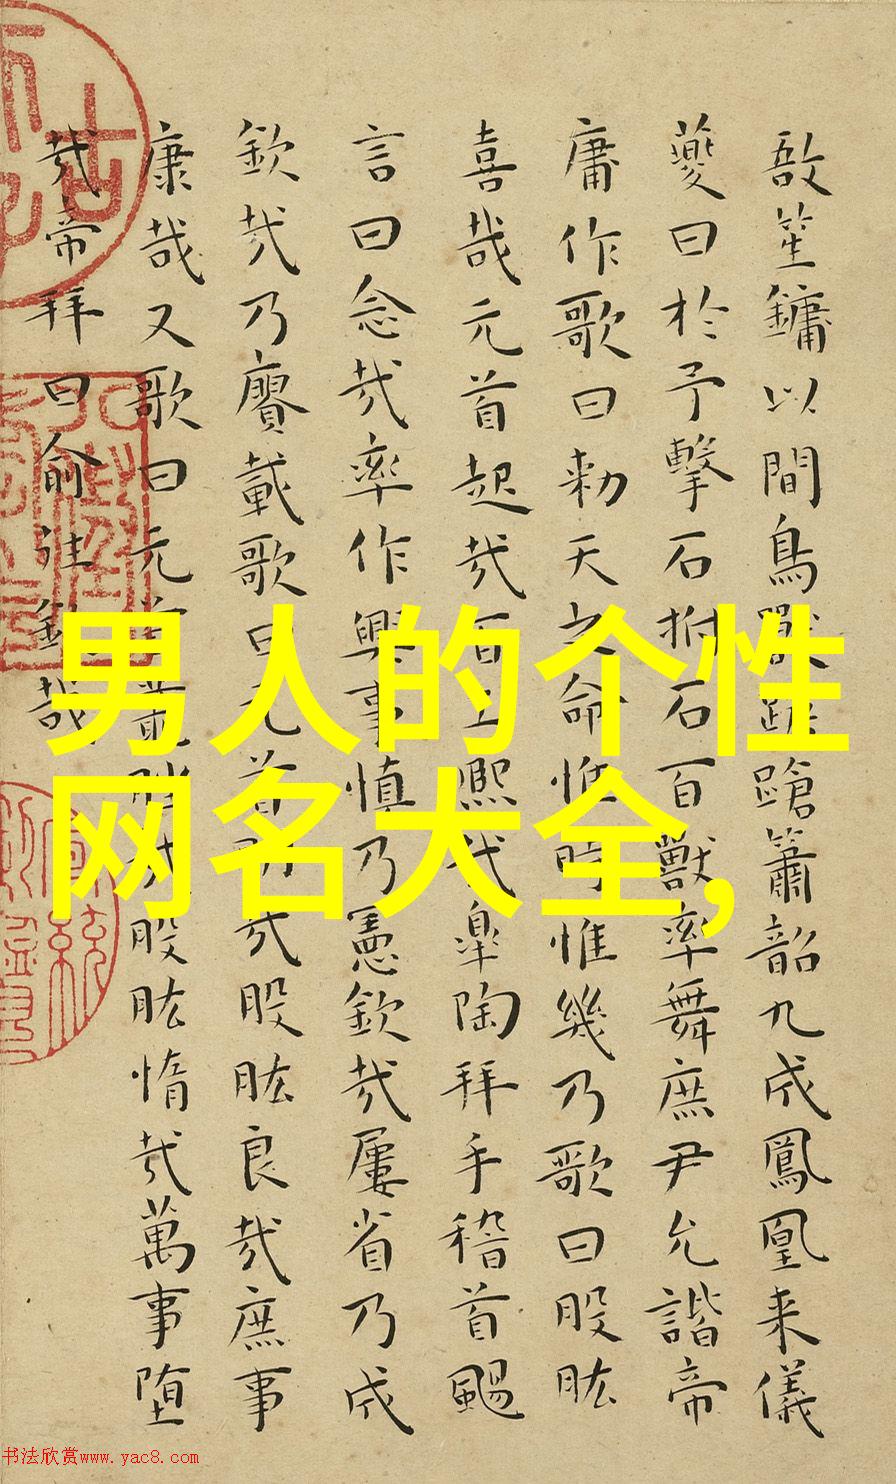 敔笙鏞以間鳥獸蹌蹌簫韶九成鳳凰来儀
夔曰於予擊石拊石百獸率舞庶尹允諧帝
庸作歌曰勑天之命惟時惟幾乃歌曰股肱
喜哉元首起哉百工熙哉皐陶拜手稽首颺
言曰念哉率作興事慎乃憲欽哉屢省乃成
欽哉乃賡載歌曰元首明哉股肱良哉庶事
康哉又歌曰元首叢脞哉股肱惰哉萬事堕
哉帝拜曰俞往欽哉
男人的个性
网名大全,
书法欣赏www.yac8.com